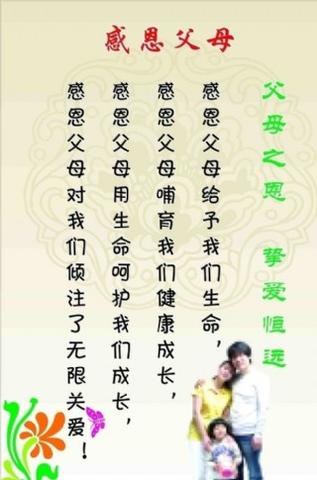 感恩父母
父母之恩 挚爱恒远
感恩父母给予我们生命，
感恩父母哺育我们健康成长，
感恩父母用生命呵护我们成长，
感恩父母对我们倾注了无限关爱！